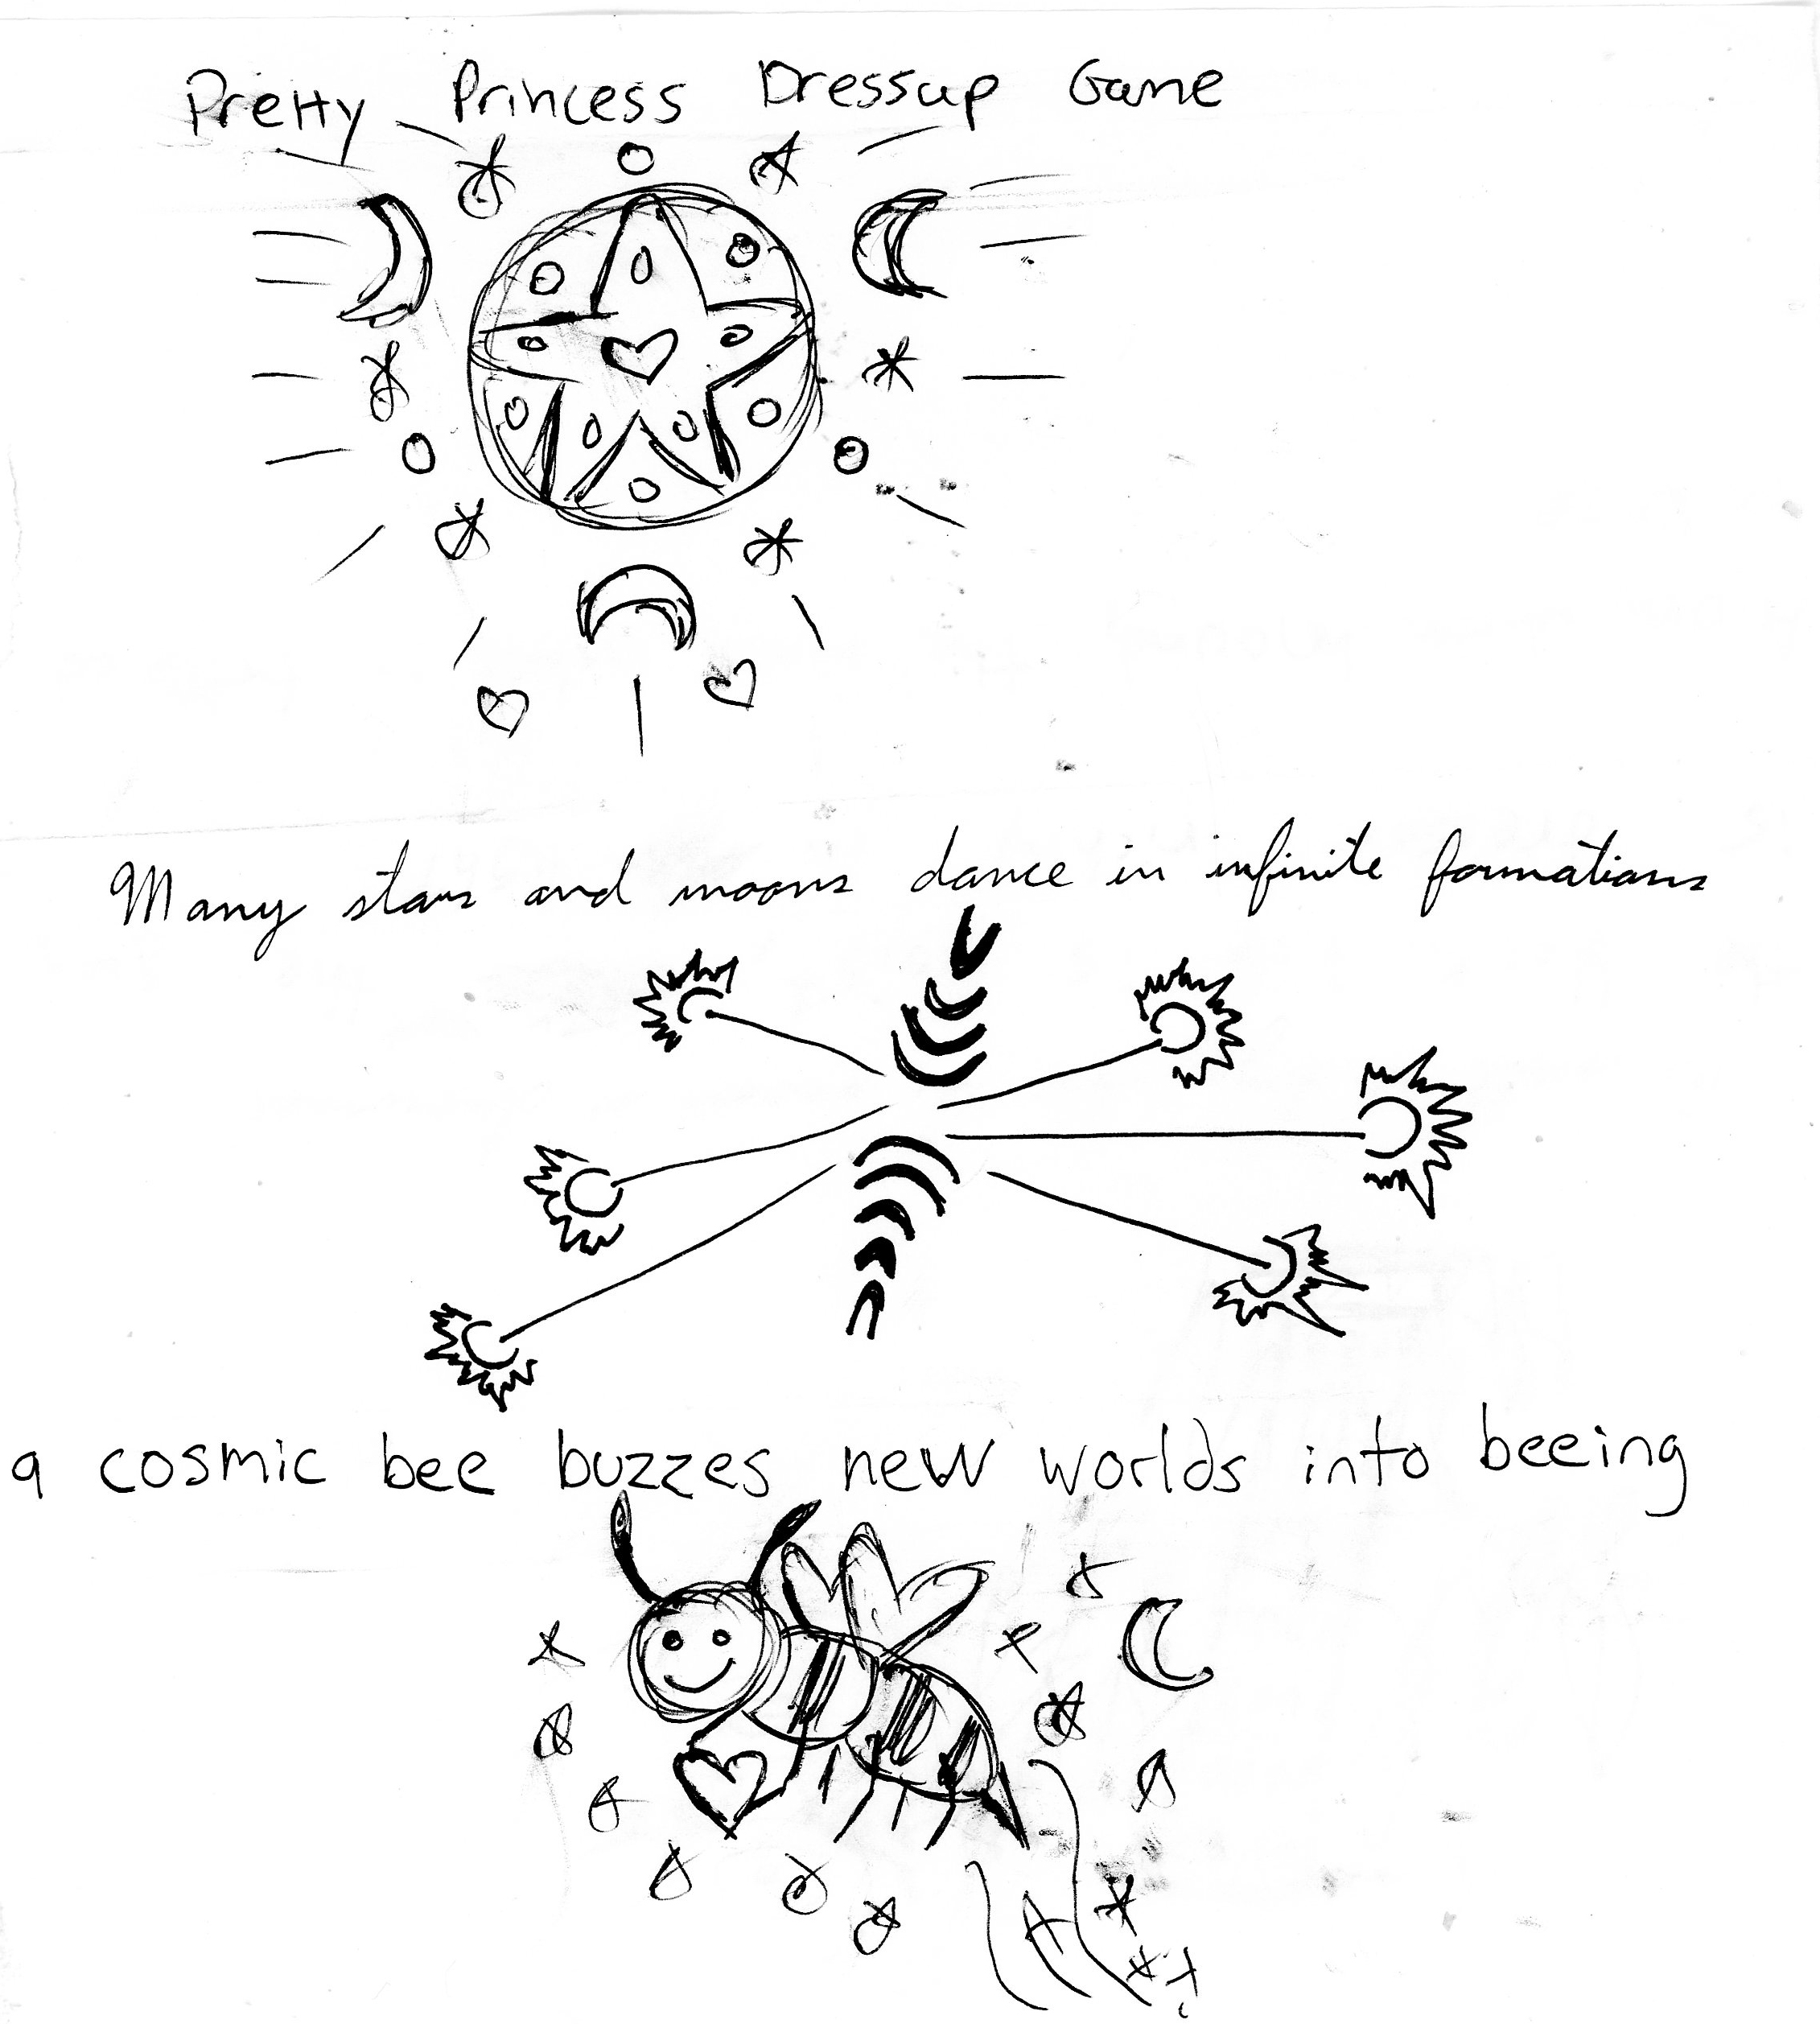 Pretty Princess Dressup Game
Many stars and moons dance in infinite formations
a cosmic bee buzzes new worlds into beeing